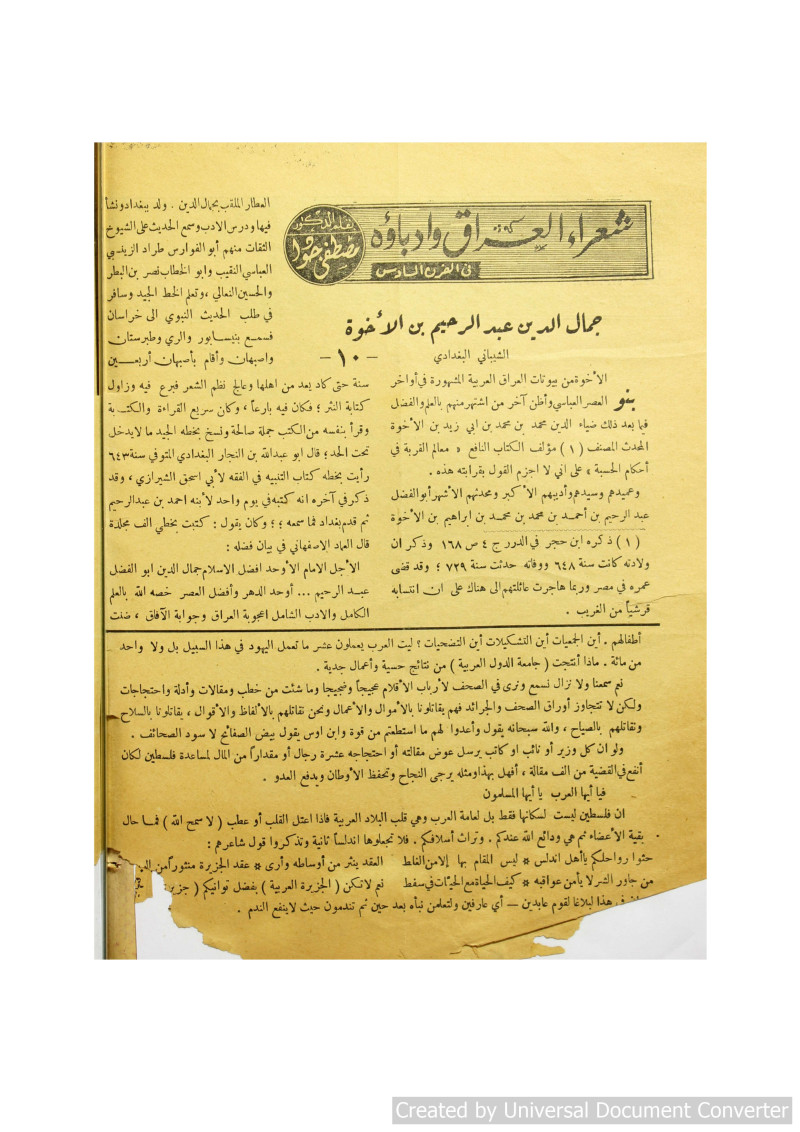 شعراء العراق وادباؤه
في القرن السادس
بقلم الدكتور
مصطفى جواد
جمال الدين عبد الرحيم بن الأخوة
الشيباني البغدادي
— ١٠ —
بنو الأخوة من بيوتات العراق العربية المشهورة في أواخر
العصر العباسي وأظن آخر من اشتهر منهم بالعلم والفضل
فيما بعد ذلك ضياء الدين محمد بن محمد بن ابي زيد بن الأخوة
المحدث المصنف (١) مؤلف الكتاب النافع « معالم القربة في
أحكام الحسبة » على اني لا اجزم القول بقرابته هذه .
وعميدهم وسيدهم وأديبهم الأكبر ومحدثهم الأشهر أبو الفضل
عبد الرحيم بن أحمد بن محمد بن محمد بن ابراهيم بن الأخوة
(١) ذكره ابن حجر في الدرر ج ٤ ص ١٦٨ وذكر ان
ولادته كانت سنة ٦٤٨ ووفاته حدثت سنة ٧٢٩ ؛ وقد قضى
عمره في مصر وربما هاجرت عائلتهم الى هناك على ان انتسابه
قرشياً من الغريب .
العطار الملقب بجمال الدين . ولد ببغداد ونشأ
فيها ودرس الادب وسمع الحديث على الشيوخ
الثقات منهم أبو الفوارس طراد الزينبي
العباسي النقيب وابو الخطاب نصر بن البطر
والحسين النعالي ، وتعلم الخط الجيد وسافر
في طلب الحديث النبوي الى خراسان
فسمع بنيسابور والري وطبرستان
واصبهان وأقام بأصبهان أربعين
سنة حتى كاد يعد من اهلها وعالج نظم الشعر فبرع فيه وزاول
كتابة النثر ؛ فكان فيه بارعاً ، وكان سريع القراءة والكتابة
وقرأ بنفسه من الكتب جملة صالحة ونسخ بخطه الجيد ما لا يدخل
تحت الحد ؛ قال ابو عبدالله بن النجار البغدادي المتوفى سنة ٦٤٣
رأيت بخطه كتاب التنبيه في الفقه لأبي اسحق الشيرازي ، وقد
ذكر في آخره انه كتبه في يوم واحد لأبنه احمد بن عبدالرحيم
ثم قدم بغداد فما سمعه ؛ ؛ وكان يقول : كتبت بخطي الف مجلدة
قال العماد الاصفهاني في بيان فضله :
الأجل الامام الأوحد افضل الاسلام جمال الدين ابو الفضل
عبد الرحيم ... أوحد الدهر وأفضل العصر خصه الله بالعلم
الكامل والادب الشامل اعجوبة العراق وجوابة الآفاق ، ضنت
أطفالهم . أين الجمعيات أين التشكيلات أين التضحيات ؟ ليت العرب يعملون عشر ما تعمل اليهود في هذا السبيل بل ولا واحد
من مائة . ماذا أنتجت ( جامعة الدول العربية ) من نتائج حسية وأعمال جدية .
نعم سمعنا ولا نزال نسمع ونرى في الصحف لأرباب الأقلام عجيجاً وضجيجا وما شئت من خطب ومقالات وأدلة واحتجاجات
ولكن لا تتجاوز أوراق الصحف والجرائد فهم يقاتلونا بالأموال والأعمال ونحن نقاتلهم بالألفاظ والأقوال ، يقاتلونا بالسلاح
ونقاتلهم بالصياح ، والله سبحانه يقول وأعدوا لهم ما استطعتم من قوة وابن اوس يقول بيض الصفائح لا سود الصحائف .
ولو ان كل وزير أو نائب او كاتب يرسل عوض مقالته أو احتجاجه عشرة رجال أو مقداراً من المال لمساعدة فلسطين لكان
أنفع في القضية من الف مقالة ، أفهل بهذا ومثله يرجى النجاح وتحفظ الأوطان ويدفع العدو .
فيا أيها العرب يا أيها المسلمون
ان فلسطين ليست لسكانها فقط بل لعامة العرب وهي قلب البلاد العربية فاذا اعتل القلب أو عطب ( لا سمح الله ) فما حال
بقية الأعضاء ثم هي ودائع الله عندكم . وتراث أسلافكم . فلا تجعلوها اندلساً ثانية وتذكروا قول شاعرهم :
حثوا رواحلكم يا أهل اندلس * ليس المقام بها إلا من الغلط
العقد ينثر من أوساطه وأرى * عقد الجزيرة منثوراً من
من جاور الشر لا يأمن عواقبه * كيف الحياة مع الحيات في سفط
نعم لا تكن ( الجزيرة العربية ) بفضل توانيكم ( جزيرة
في هذا لبلاغا لقوم عابدين — أي عارفين ولتعلمن نبأه بعد حين ثم تندمون حيث لا ينفع الندم .
Created by Universal Document Converter